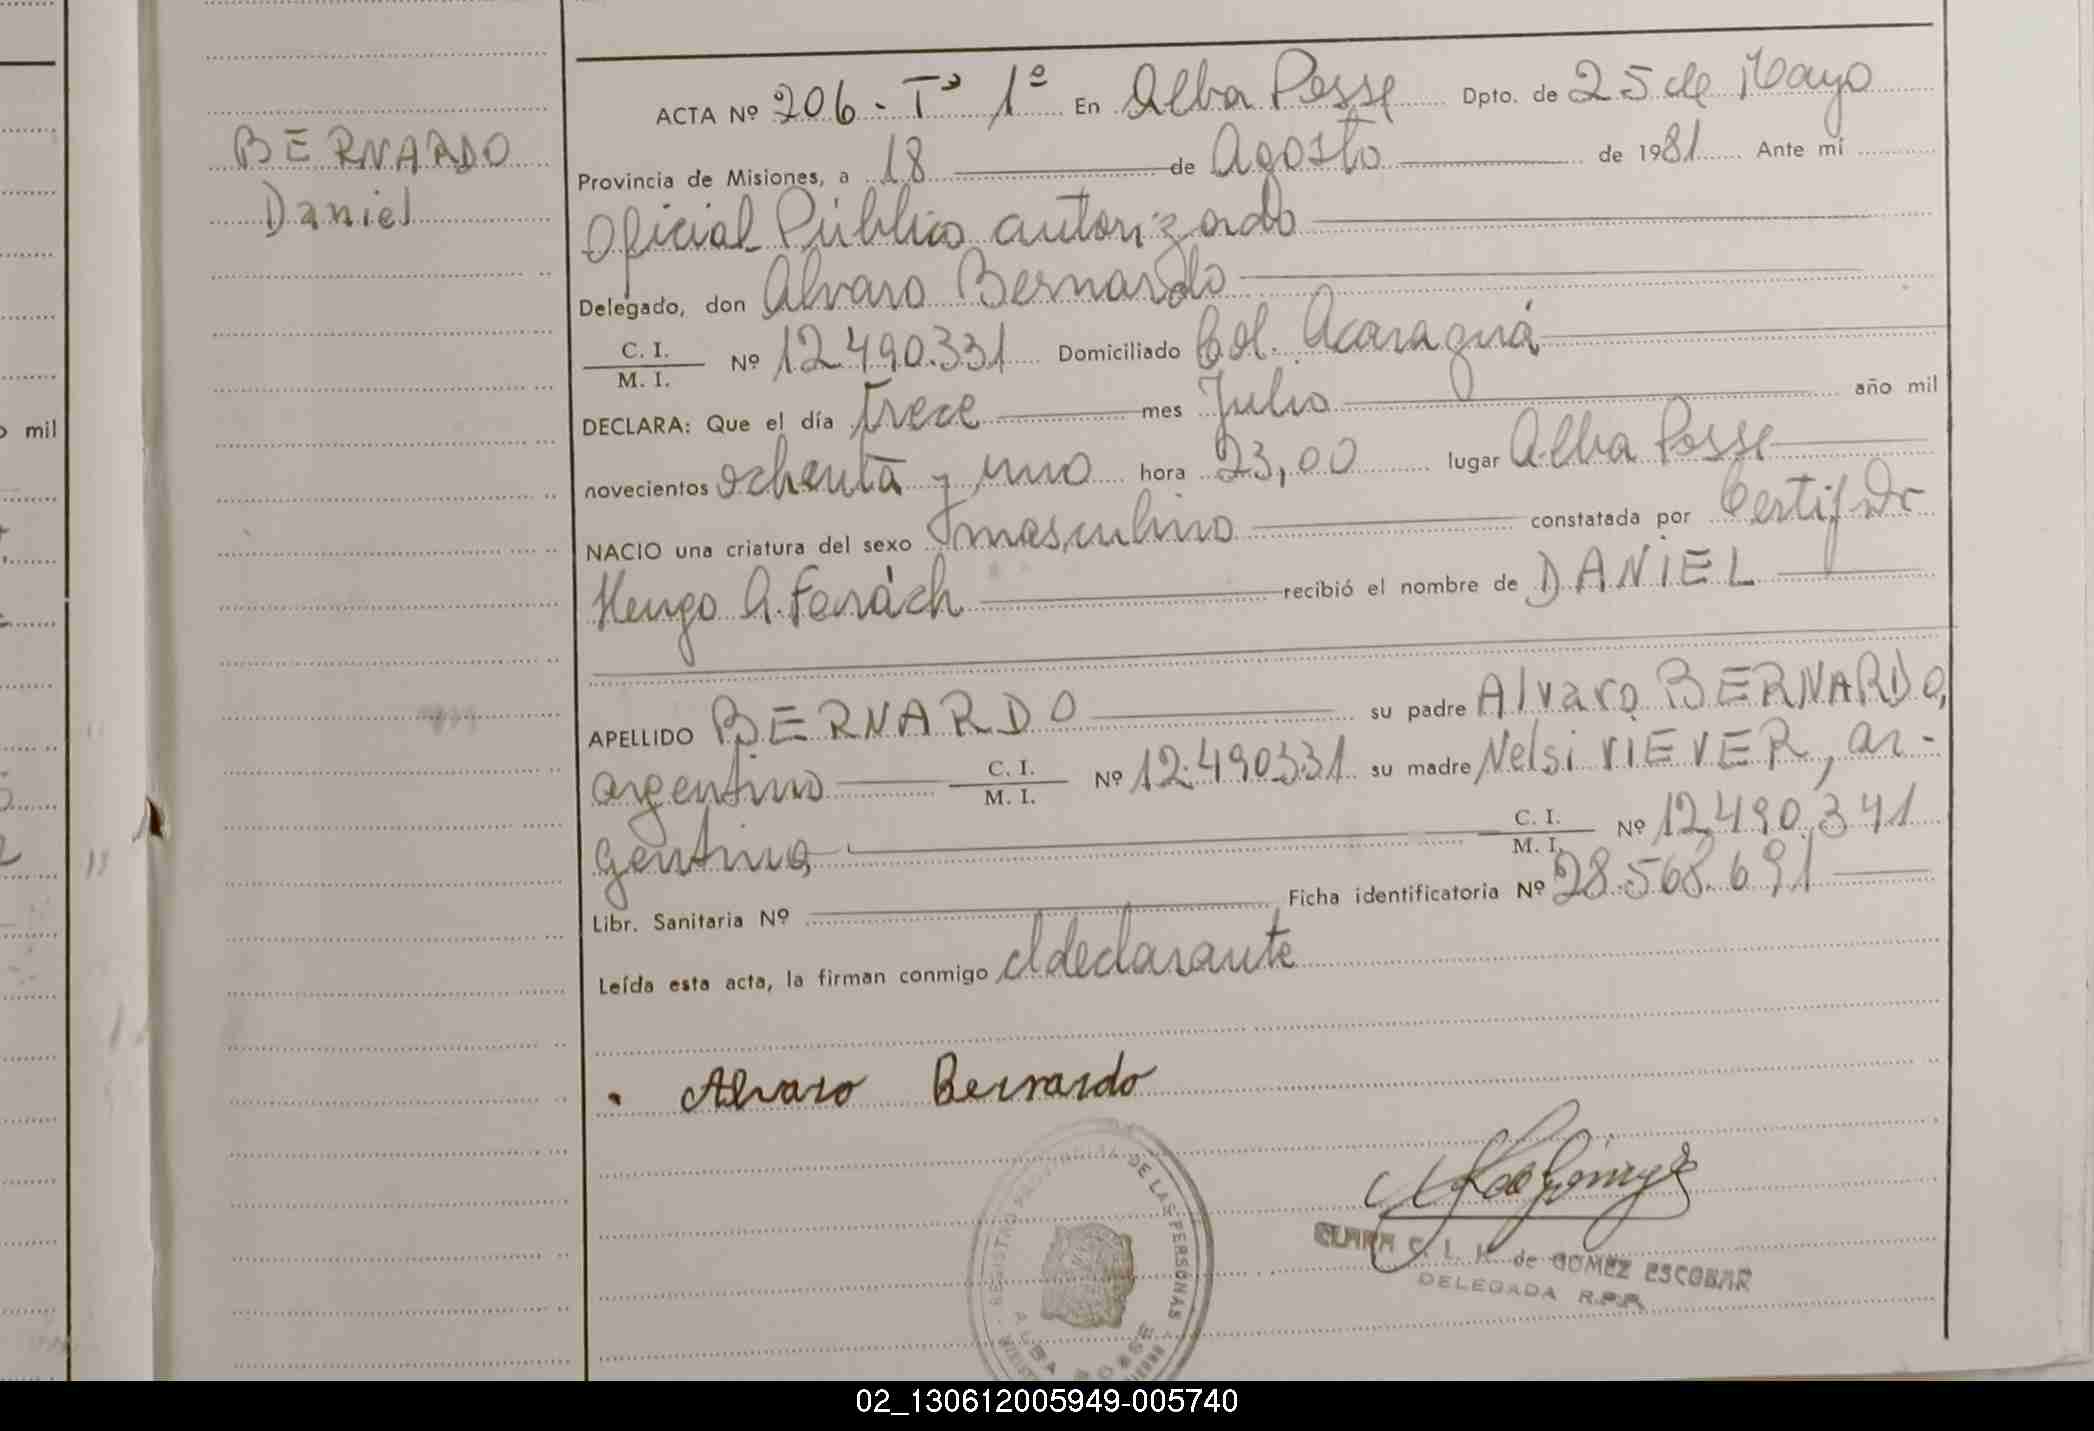 BERNARDO
Daniel
ACTA Nº 206 - Tº 1º En Alba Posse Dpto. de 25 de Mayo
Provincia de Misiones, a 18 de Agosto de 1981 Ante mí
Oficial Público autorizado
Delegado, don Alvaro Bernardo
C. I.
M. I. Nº 12.490.331 Domiciliado Col. Acaraguá
DECLARA: Que el día trece mes Julio año mil
novecientos ochenta y uno hora 23,00 lugar Alba Posse
NACIO una criatura del sexo masculino constatada por Certif Dr
Hugo A. recibió el nombre de DANIEL
APELLIDO BERNARDO su padre Alvaro BERNARDO,
argentino C. I.
M. I. Nº 12.490331 su madre Nelsi VIEVER, ar-
gentina C. I.
M. I. Nº 12.490.341
Libr. Sanitaria Nº Ficha identificatoria Nº 28.568.691
Leída esta acta, la firman conmigo el declarante
Alvaro Bernardo
REGISTRO PROVINCIAL DE LAS PERSONAS
ALBA POSSE
CLARA C. L. K. de GOMEZ ESCOBAR
DELEGADA R.P.P.
mil
02_130612005949-005740